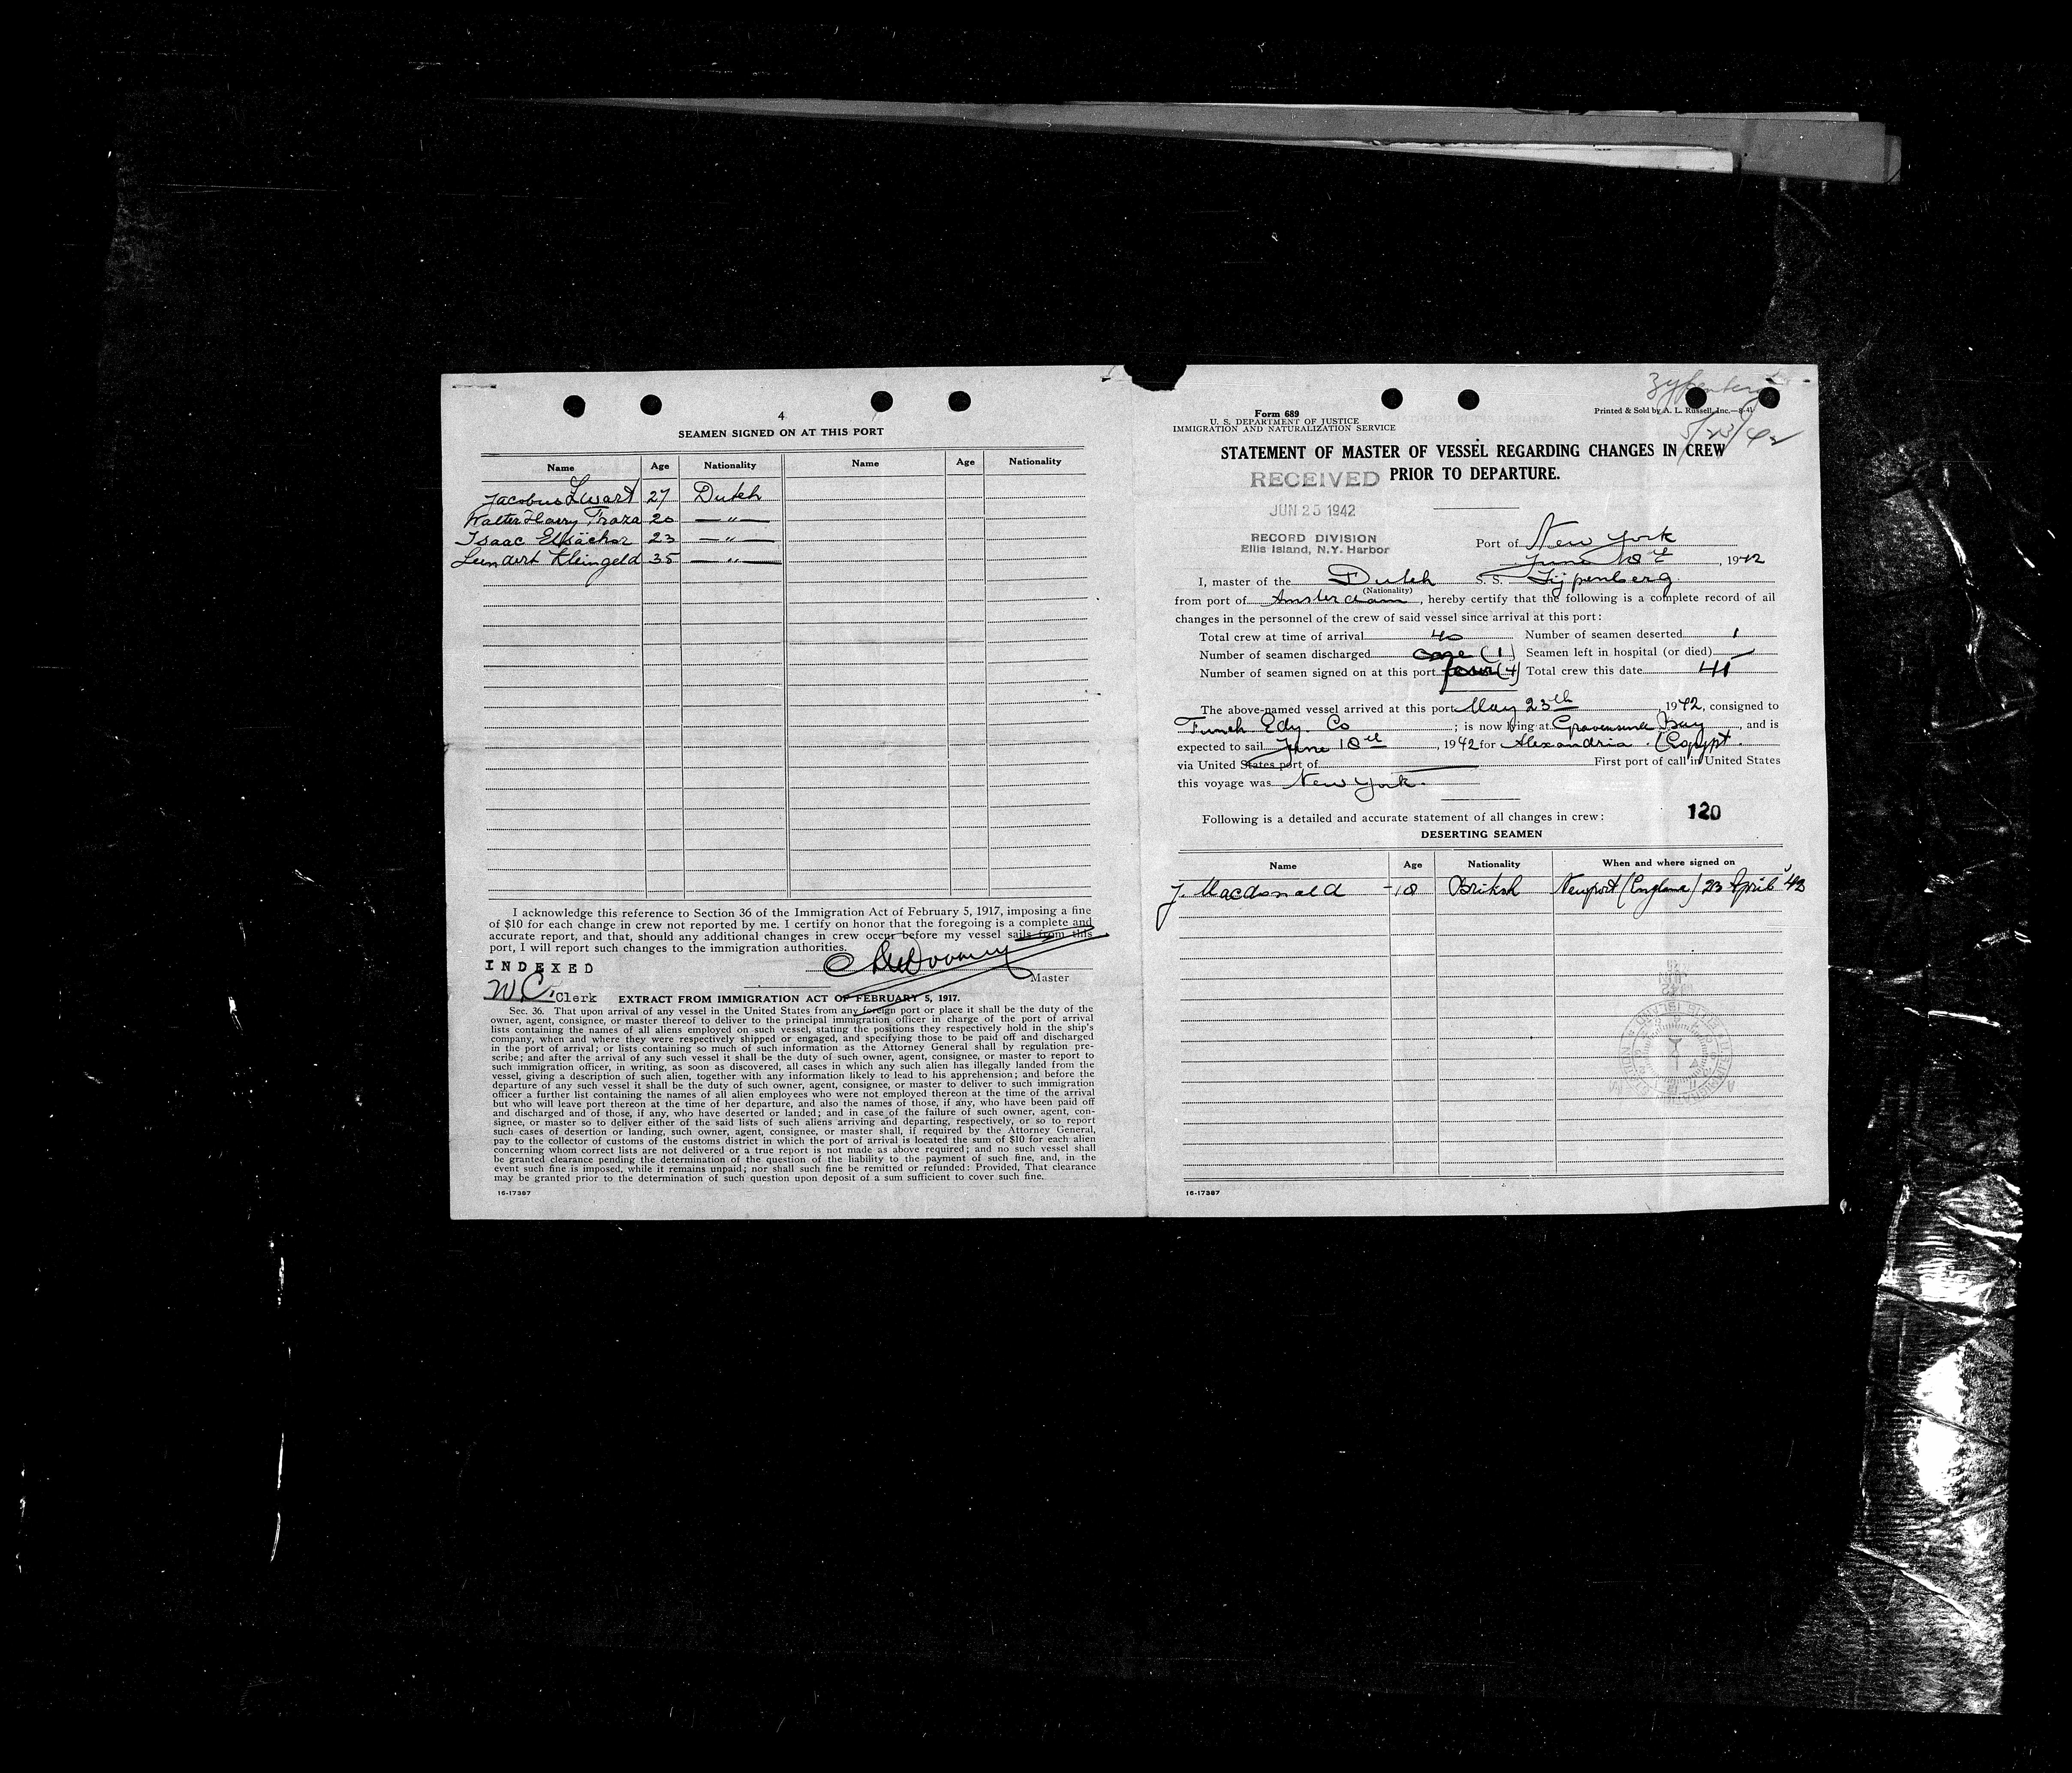 4
SEAMEN SIGNED ON AT THIS PORT
Name Age Nationality Name Age Nationality
Jacobus Zwart 27 Dutch
Walter Harry Fraza 20 — " —
Isaac Elsächer 23 — " —
Leendert Kleingeld 35 — " —
I acknowledge this reference to Section 36 of the Immigration Act of February 5, 1917, imposing a fine
of $10 for each change in crew not reported by me. I certify on honor that the foregoing is a complete and
accurate report, and that, should any additional changes in crew occur before my vessel sails from this
port, I will report such changes to the immigration authorities.
INDEXED
Master
W.C. Clerk
EXTRACT FROM IMMIGRATION ACT OF FEBRUARY 5, 1917.
Sec. 36. That upon arrival of any vessel in the United States from any foreign port or place it shall be the duty of the
owner, agent, consignee, or master thereof to deliver to the principal immigration officer in charge of the port of arrival
lists containing the names of all aliens employed on such vessel, stating the positions they respectively hold in the ship's
company, when and where they were respectively shipped or engaged, and specifying those to be paid off and discharged
in the port of arrival; or lists containing so much of such information as the Attorney General shall by regulation pre-
scribe; and after the arrival of any such vessel it shall be the duty of such owner, agent, consignee, or master to report to
such immigration officer, in writing, as soon as discovered, all cases in which any such alien has illegally landed from the
vessel, giving a description of such alien, together with any information likely to lead to his apprehension; and before the
departure of any such vessel it shall be the duty of such owner, agent, consignee, or master to deliver to such immigration
officer a further list containing the names of all alien employees who were not employed thereon at the time of the arrival
but who will leave port thereon at the time of her departure, and also the names of those, if any, who have been paid off
and discharged and of those, if any, who have deserted or landed; and in case of the failure of such owner, agent, con-
signee, or master so to deliver either of the said lists of such aliens arriving and departing, respectively, or so to report
such cases of desertion or landing, such owner, agent, consignee, or master shall, if required by the Attorney General,
pay to the collector of customs of the customs district in which the port of arrival is located the sum of $10 for each alien
concerning whom correct lists are not delivered or a true report is not made as above required; and no such vessel shall
be granted clearance pending the determination of the question of the liability to the payment of such fine, and, in the
event such fine is imposed, while it remains unpaid; nor shall such fine be remitted or refunded: Provided, That clearance
may be granted prior to the determination of such question upon deposit of a sum sufficient to cover such fine.
16-17387
Zypenberg
5/23/42
Form 689
U. S. DEPARTMENT OF JUSTICE
IMMIGRATION AND NATURALIZATION SERVICE
Printed & Sold by A. L. Russell, Inc.—8-41
STATEMENT OF MASTER OF VESSEL REGARDING CHANGES IN CREW
PRIOR TO DEPARTURE.
RECEIVED
JUN 25 1942
RECORD DIVISION
Ellis Island, N.Y. Harbor
Port of New York
June 18th, 1942
I, master of the Dutch S. S. Zijpenberg
(Nationality)
from port of Amsterdam, hereby certify that the following is a complete record of all
changes in the personnel of the crew of said vessel since arrival at this port:
Total crew at time of arrival 40 Number of seamen deserted 1
Number of seamen discharged one (1) Seamen left in hospital (or died) —
Number of seamen signed on at this port four (4) Total crew this date 41
The above-named vessel arrived at this port May 23th, 1942, consigned to
Funch Edy. Co; is now lying at Gravensend Bay, and is
expected to sail June 18th, 1942 for Alexandria (Egypt.
via United States port of — First port of call in United States
this voyage was New York.
Following is a detailed and accurate statement of all changes in crew:
120
DESERTING SEAMEN
Name Age Nationality When and where signed on
J. Macdonald 18 British Newport (England) 23 April '42
16-17387